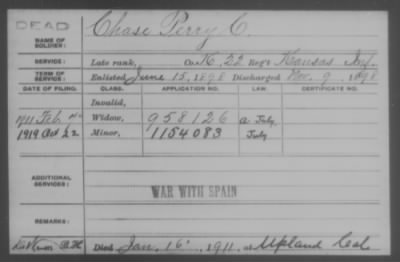 DEAD
Chase Perry C.
NAME OF SOLDIER:
SERVICE: Late rank, Co. K, 22 Reg't Kansas Inf.
TERM OF SERVICE: Enlisted June 15, 1898 Discharged Nov. 9, 1898
DATE OF FILING. CLASS. APPLICATION NO. LAW. CERTIFICATE NO.
Invalid,
1911 Feb. Widow, 958126 a July
1919 Oct 22 Minor, 1154083 July
ADDITIONAL SERVICES:
WAR WITH SPAIN
REMARKS:
Died Jan. 16, 1911, at Upland Cal